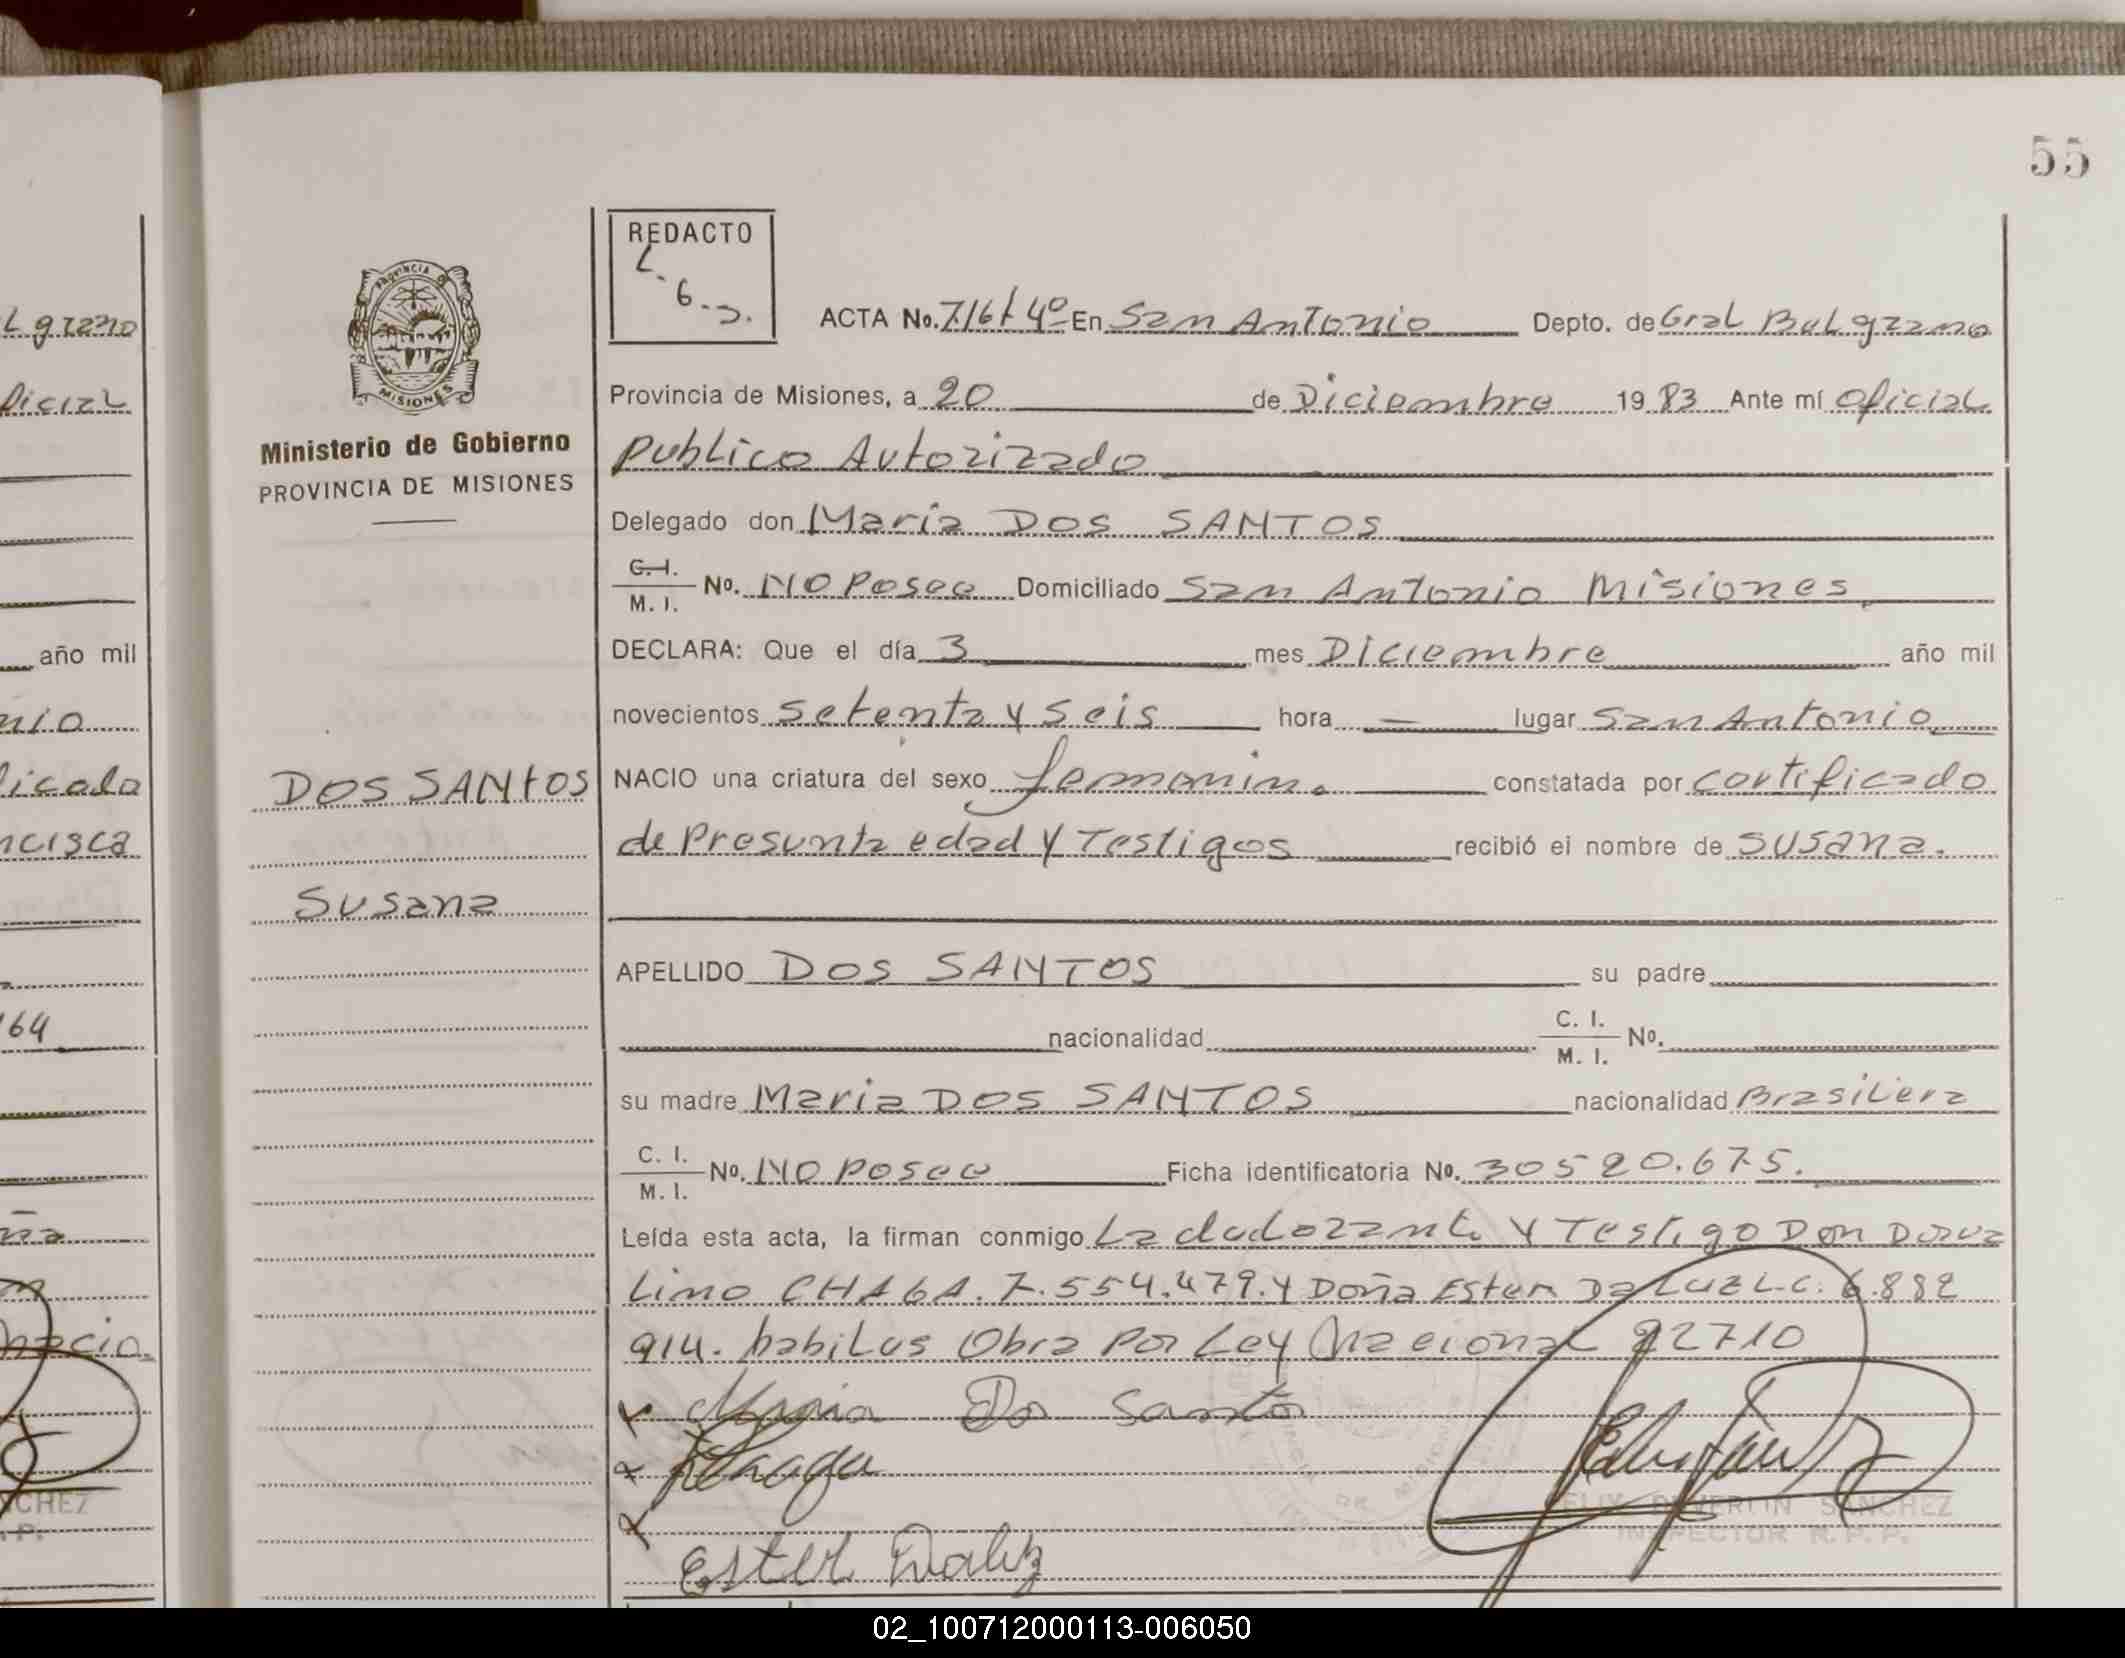 55
REDACTO
L.
6.
ACTA No. 716 t 4º En San Antonio Depto. de Gral Belgrano
Provincia de Misiones, a 20 de Diciembre 1983 Ante mí Oficial
Publico Autorizado
Delegado don Maria DOS SANTOS
C.I. M. I. No. NO Posee Domiciliado San Antonio Misiones
DECLARA: Que el día 3 mes Diciembre año mil
novecientos setenta y seis hora — lugar San Antonio
NACIO una criatura del sexo femenin. constatada por certificado
de Presunta edad y Testigos recibió el nombre de SUSANA.
APELLIDO DOS SANTOS su padre
nacionalidad C. I. M. I. No.
su madre Maria DOS SANTOS nacionalidad Brasilera
C. I. M. I. No. NO Posee Ficha identificatoria No. 30520.675.
Leída esta acta, la firman conmigo La declarante y Testigo Don
Lino CHAGA. 7.554.479. y Doña Ester Da Luz L.C. 6.882
914. habiles Obra Por Ley Nacional 22710
Maria Dos Santos
Chaga
Ester Daluz
FELIX SANCHEZ
INSPECTOR R. P. P.
PROVINCIA DE
MISIONES
Ministerio de Gobierno
PROVINCIA DE MISIONES
DOS SANtOS
Susana
Lgrano
ficial
año mil
nio
ncisca
164
ña
CHEZ
.P.
02_100712000113-006050